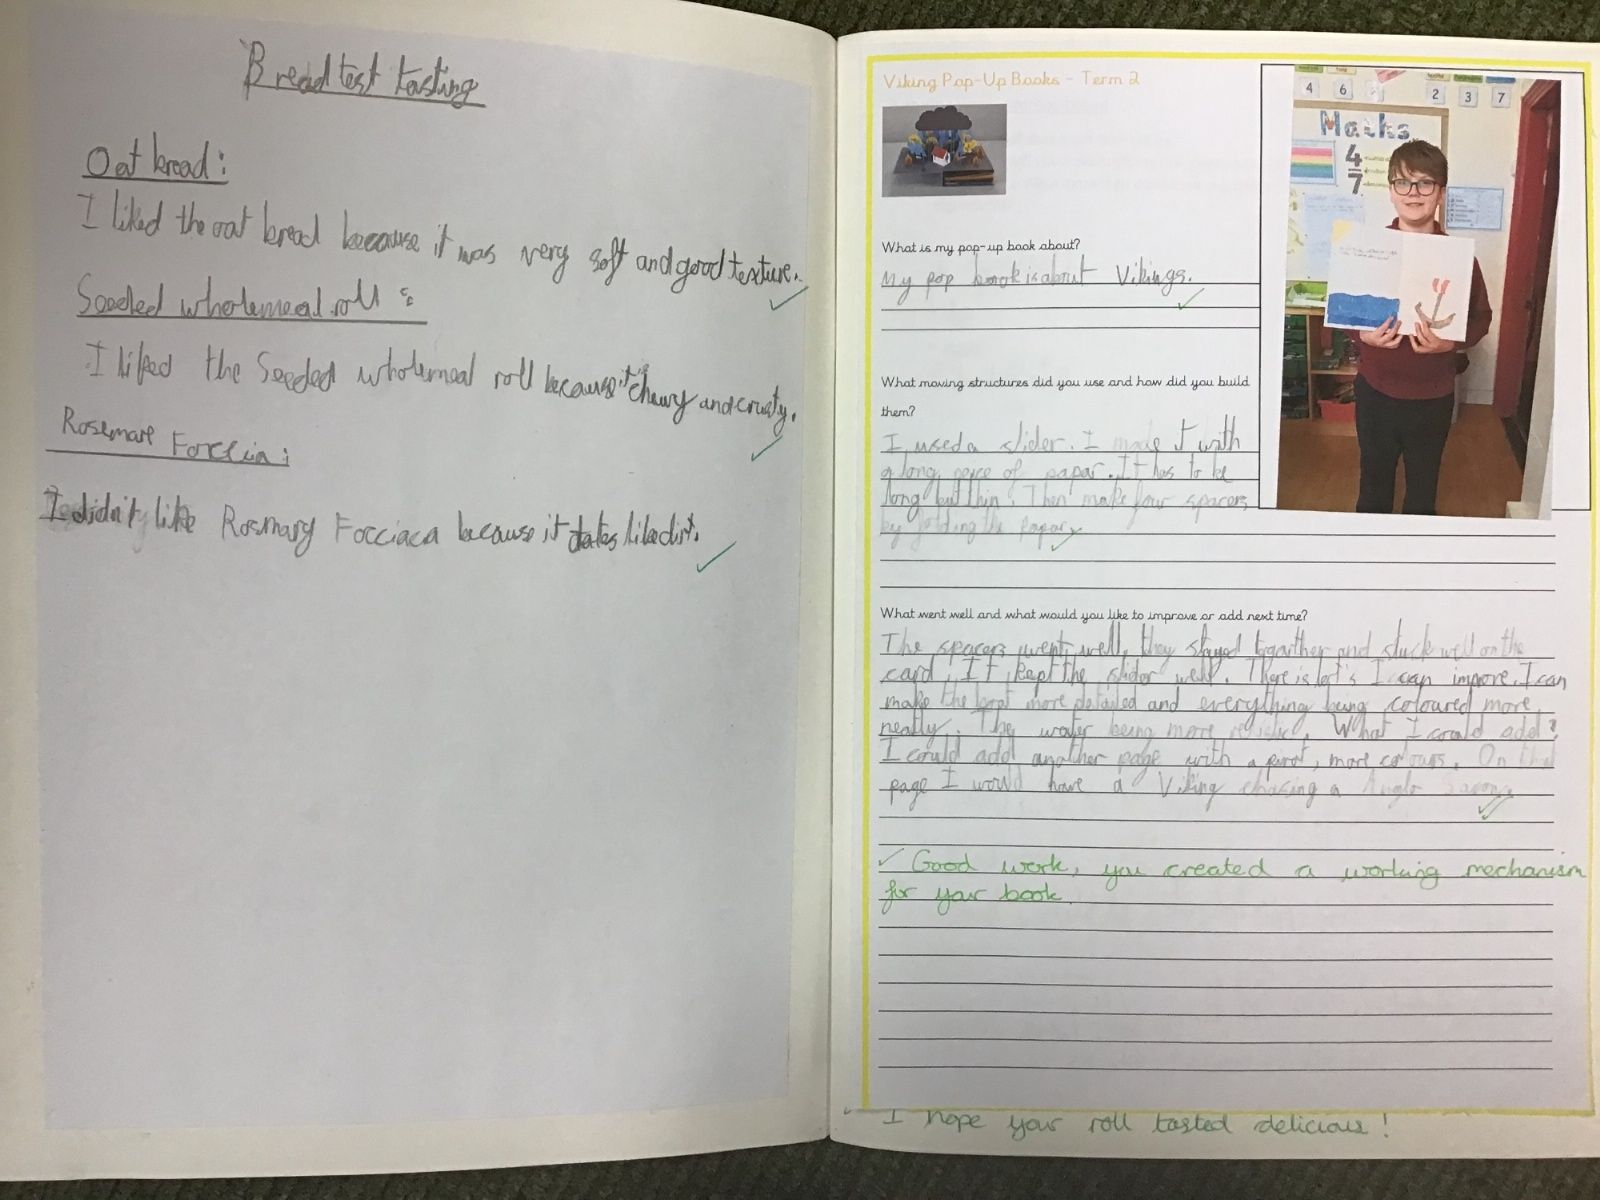 Bread test tasting
Oat bread:
I liked the oat bread because it was very soft and good texture.
Seeded wholemeal roll :
I liked the Seeded wholemeal roll because it chewy and crusty.
Rosemare Foccia:
I didn't like Rosmary Focciaca because it like dirt.
Viking Pop-Up Books - Term 2
What is my pop-up book about?
My pop book is about Vikings.
What moving structures did you use and how did you build
them?
I used a slider. I made it with
a long peice of papar. It has to be
long but thin. Then make four spacers
by folding the papar
What went well and what would you like to improve or add next time?
The spacers went well, they stayed togarther and stuck well on the
card. It kept the slider well. There is lot's I can improve. I can
make the boat more detailed and everything being coloured more
neatly. The water being more What I could add?
I could add another page with a pivot, more colours. On that
page I would have a Viking chasing a Anglo
Good work, you created a working mechanism
for your book.
I hope your roll tasted delicious!
4 6
2 3 7
Maths
4
7